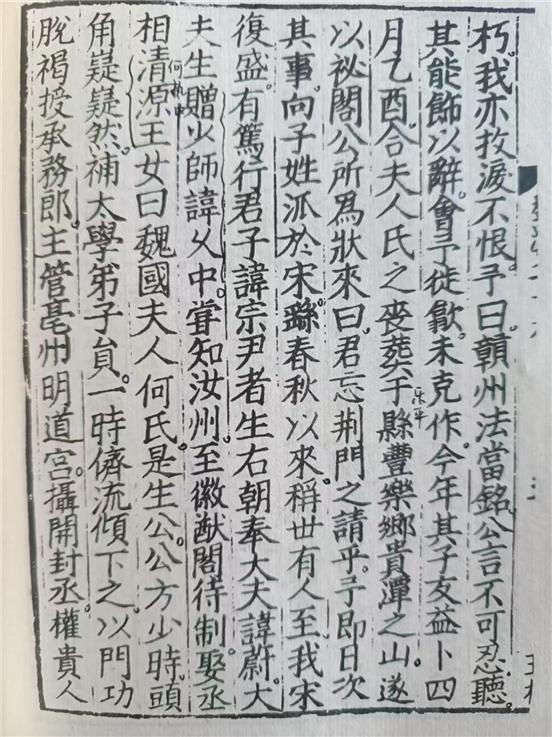 朽。我亦抆淚不恨。予曰。贛州法當銘。公言不可忍聽。
其能飾以辭。會予徙歙。未克作。今年其子友益卜四
月乙酉。合夫人氏之喪葬于縣豐樂鄉貴潭之山。遂
乐平
以祕閣公所為狀來曰。君忘荆門之請乎。予即日次
其事。向子姓派於宋。繇春秋以來。稱世有人。至我宋
復盛。有篤行君子諱宗尹者生右朝奉大夫諱蔚。大
夫生贈少師諱久中。甞知汝州。至徽猷閣待制。娶丞
相清源王女曰魏國夫人何氏。是生公。公方少時。頭
何執中
角嶷嶷然。補太學弟子員。一時儕流傾下之。以門功
脫褐授承務郎。主管亳州明道宮。攝開封丞。權貴人